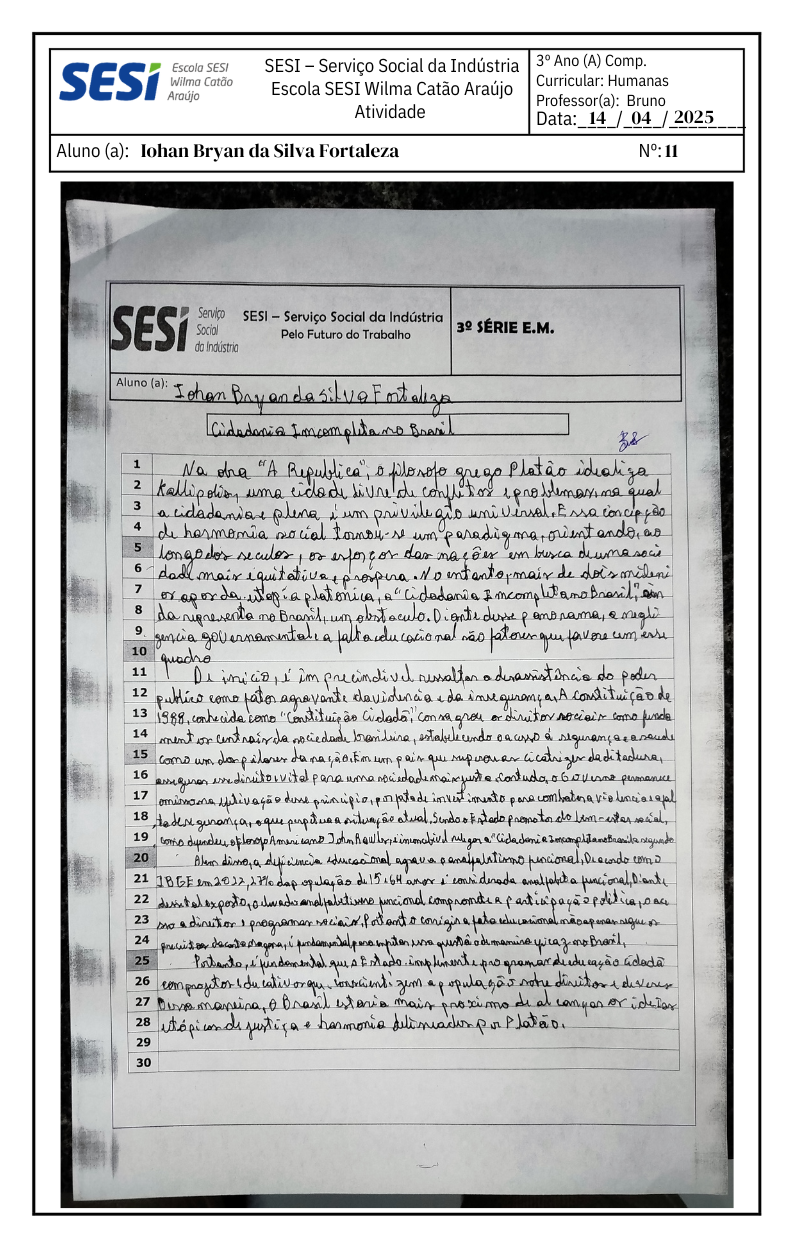 SESI
Escola SESI
Wilma Catão
Araújo
SESI – Serviço Social da Indústria
Escola SESI Wilma Catão Araújo
Atividade
3º Ano (A) Comp.
Curricular: Humanas
Professor(a): Bruno
Data: 14 / 04 / 2025
Aluno (a): Iohan Bryan da Silva Fortaleza Nº: 11
SESI
Serviço
Social
da Indústria
SESI – Serviço Social da Indústria
Pelo Futuro do Trabalho
3º SÉRIE E.M.
Aluno (a): Iohan Bryan da Silva Fortaleza
Cidadania Incompleta no Brasil
1 Na obra "A Republica", o filosofo grego Platão idealiza
2 Kallipolis, uma cidade livre de conflitos e problemas, na qual
3 a cidadania e plena é um privilegio universal. Essa concepção
4 de harmonia social tornou-se um paradigma, orientando, ao
5 longo dos seculos, os esforços das nações em busca de uma socie
6 dade mais equitativa e prospera. No entanto, mais de dois mileni
7 os apos da utopia platonica, a "Cidadania Incompleta no Brasil", ain
8 da representa no Brasil, um obstaculo. Diante desse panorama, a negli
9 gencia governamental e a falta educacional são fatores que favorecem esse
10 quadro
11 De inicio, é imprecindivel ressaltar a desassistência do poder
12 publico como fator agravante da violencia e da insegurança. A Constituição de
13 1988, conhecida como "Constituição Cidadã", consagrou os direitos sociais como funda
14 mentos centrais da sociedade brasileira, estabelecendo o acesso à segurança e a saude
15 como um dos pilares da nação. Em um pais que supera as cicatrizes da ditadura,
16 assegurar esse direito é vital para uma sociedade mais justa. Contudo, o Governo permanece
17 omisso na efetivação desse principio, por falta de investimento para combater a violencia e a fal
18 ta de segurança, o que perpetua a situação atual. Sendo o Estado promotor do bem-estar social,
19 como defendeu o filosofo Americano John Rawls, é inconcebivel relegar a "Cidadania Incompleta no Brasil" a segundo
20 Alem disso, a deficiencia educacional agrava o analfabetismo funcional. De acordo com o
21 IBGE em 2022, 27% da população de 15 a 64 anos é considerada analfabeta funcional. Diante
22 desse tal exposto, o elevado analfabetismo funcional compromete a participação politica, o aces
23 so a direitos e programas sociais. Portanto corrigir a falta educacional não apenas segue os
24 preceitos da carta magna, é fundamental para enfrentar essa questão de maneira eficaz no Brasil.
25 Portanto, é fundamental que o Estado implemente programas de educação cidadã
26 com projetos educativos que conscientizem a população sobre direitos e deveres
27 Dessa maneira, o Brasil estaria mais proximo de alcançar os ideias
28 utópicos de justiça e harmonia delineados por Platão.
29
30